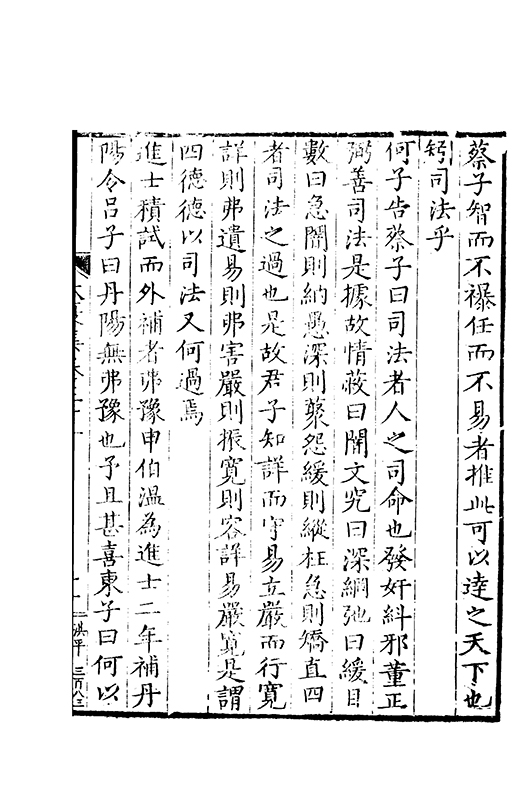 蔡子智而不襮任而不易者推此可以達之天下也
矧司法乎
何子告蔡子曰司法者人之司命也發奸糾邪董正
弼善司法是據故情蔽曰闇文究曰深綱弛曰緩目
數曰急闇則納愚深則藂怨緩則縱枉急則矯直四
者司法之過也是故君子知詳而守易立嚴而行寬
詳則弗遺易則弗害嚴則振寬則容詳易嚴寬是謂
四德德以司法又何過焉
進士積試而外補者弗豫申伯溫為進士二年補丹
陽令呂子曰丹陽無弗豫也予且甚喜東子曰何以